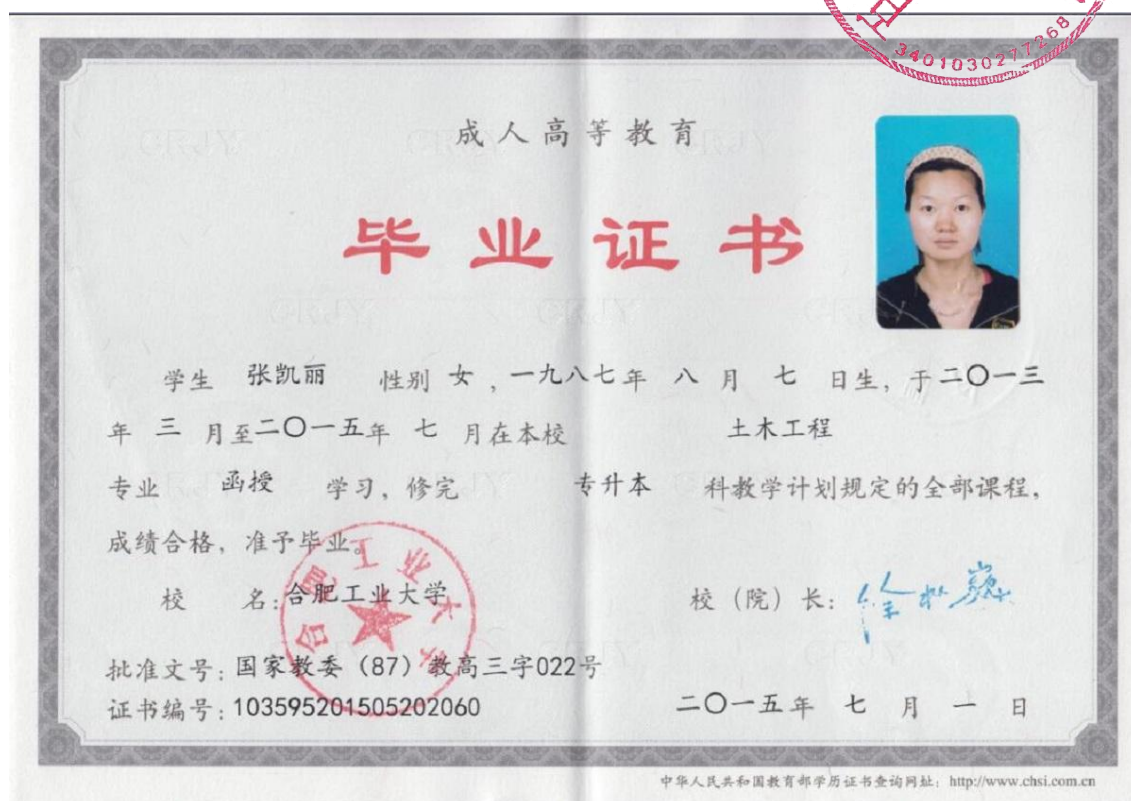 3401030277268
成人高等教育
毕业证书
学生 张凯丽 性别 女 ，一九八七年 八 月 七 日生，于二〇一三
年 三 月至二〇一五年 七 月在本校 土木工程
专业 函授 学习，修完 专升本 科教学计划规定的全部课程，
成绩合格，准予毕业。
校 名：合肥工业大学 校（院）长：
批准文号：国家教委（87）教高三字022号
证书编号：103595201505202060 二〇一五年 七 月 一 日
中华人民共和国教育部学历证书查询网址：http://www.chsi.com.cn